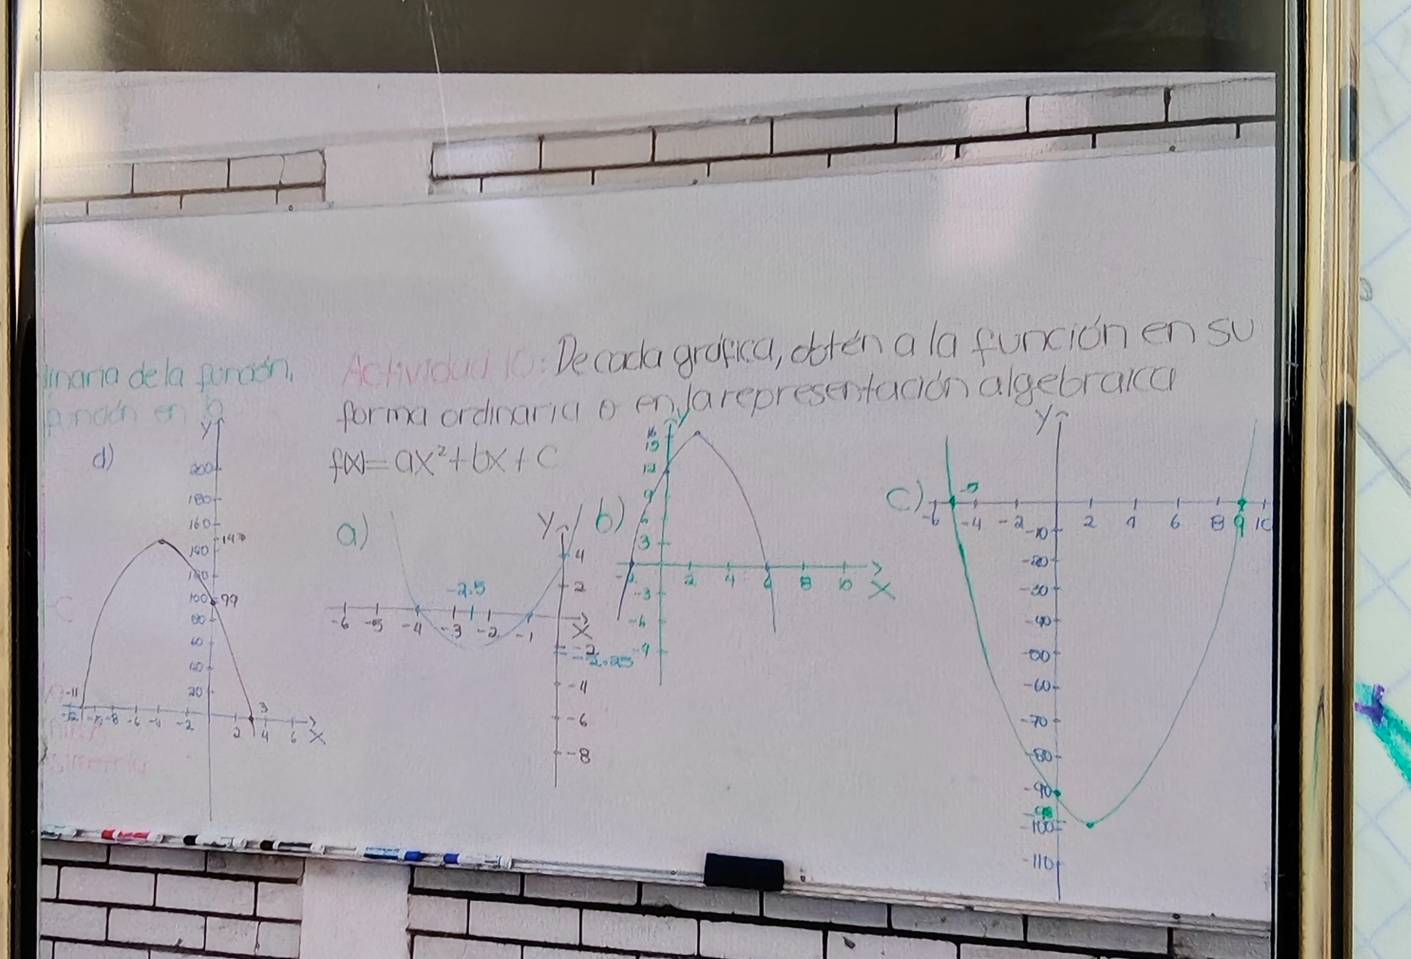 Actividad 10: De cada gráfica, obtén a la función en su
forma ordinaria o en la representación algebraica
f(x)=ax²+bx+c
de la función.
d)
y
200
180
160
140
120
100
99
80
60
40
20
-11
-12 -10 -8 -6 -4 -2 2 3 4 6 x
a)
y
4
2
-2.5
-6 -5 -4 -3 -2 -1 x
-2
-2.25
-4
-6
-8
b)
y
15
12
9
6
3
-2 2 4 6 8 10 x
-3
-6
-9
c)
y
-5
-6 -4 -2 2 4 6 8 9 10
-10
-20
-30
-40
-50
-60
-70
-80
-90
-100
-110